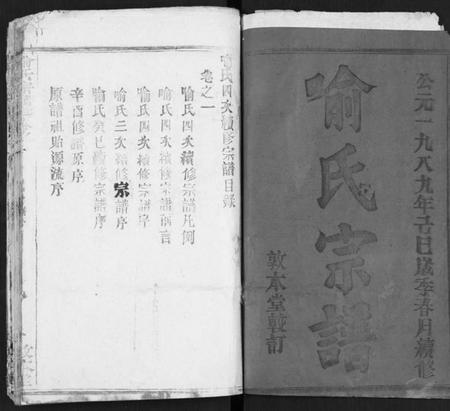 公元一九八九年己巳歲季春月續修
喻氏宗譜
敦本堂較訂
喻氏四次續修宗譜目錄
卷之一
喻氏四次續修宗譜凡例
喻氏四次續修宗譜言
喻氏四次續修宗譜序
喻氏三次續修宗譜序
喻氏癸巳續修宗譜序
辛酉修譜原序
原譜祖貽源流序